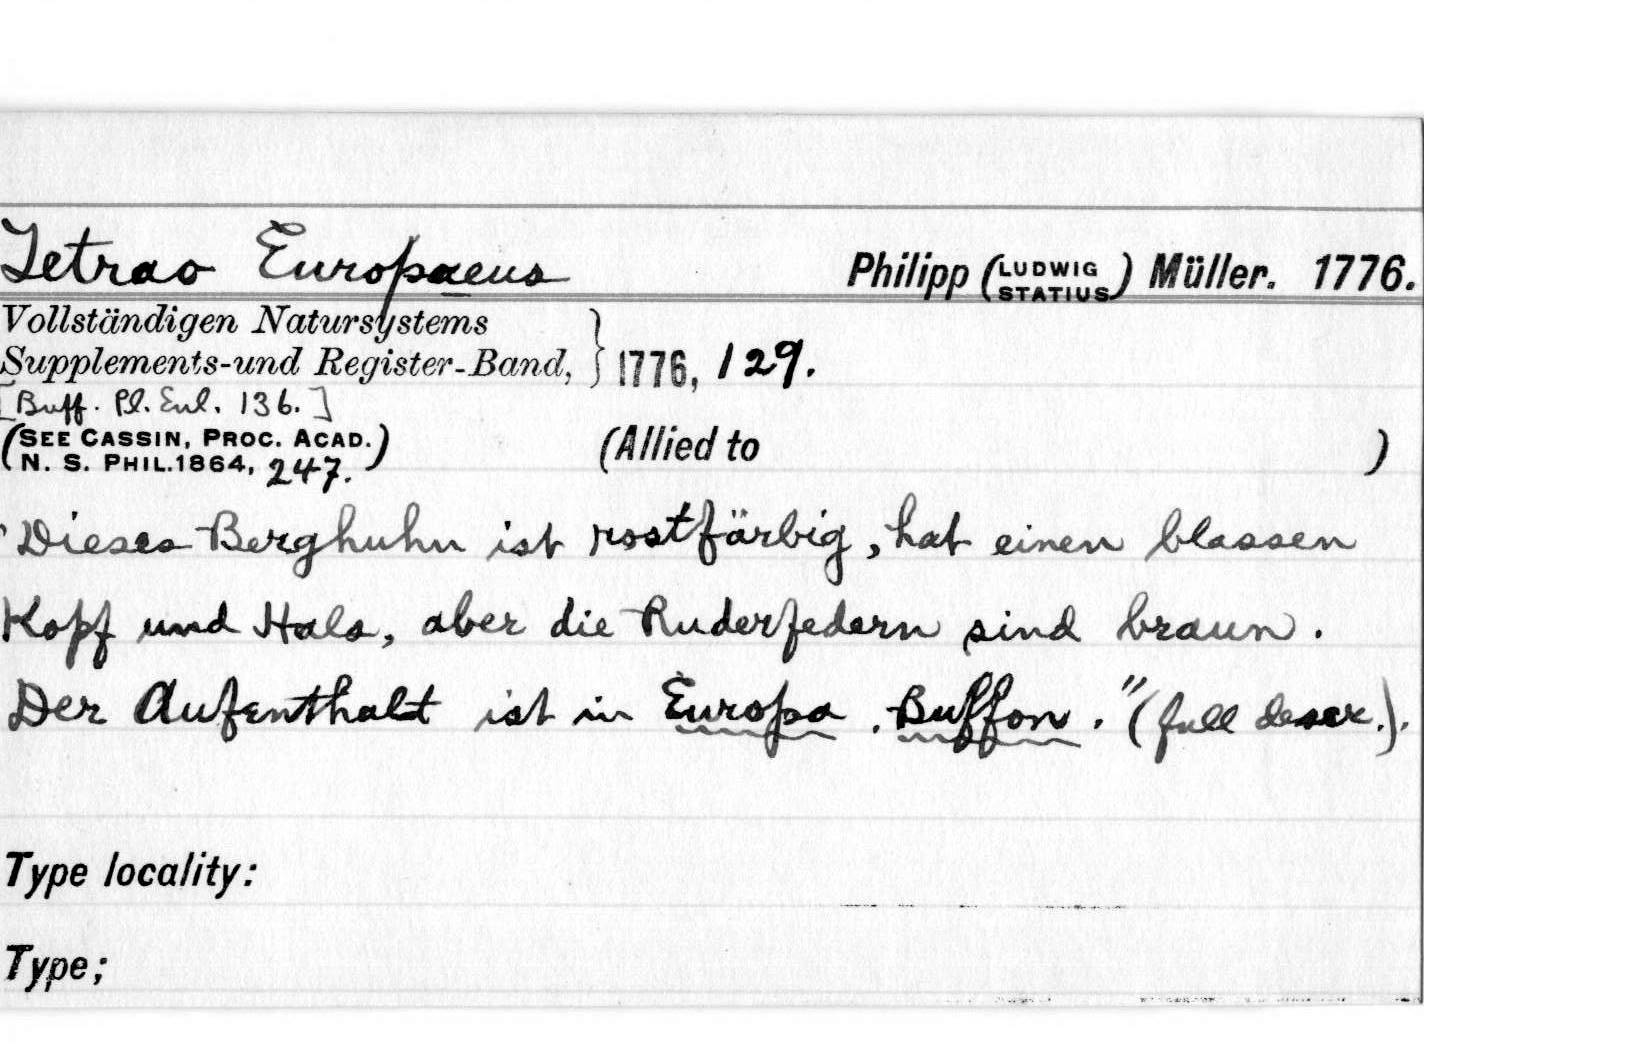 Tetrao Europaeus Philipp (LUDWIG STATIUS) Müller. 1776.
Vollständigen Natursystems
Supplements-und Register-Band, } 1776, 129.
[Buff. Pl. Enl. 136.]
(SEE CASSIN, PROC. ACAD.
N. S. PHIL. 1864, 247.) (Allied to )
"Dieses Berghuhn ist rostfärbig, hat einen blassen
Kopf und Hals, aber die Ruderfedern sind braun.
Der Aufenthalt ist in Europa. Buffon." (full descr.).
Type locality:
Type;